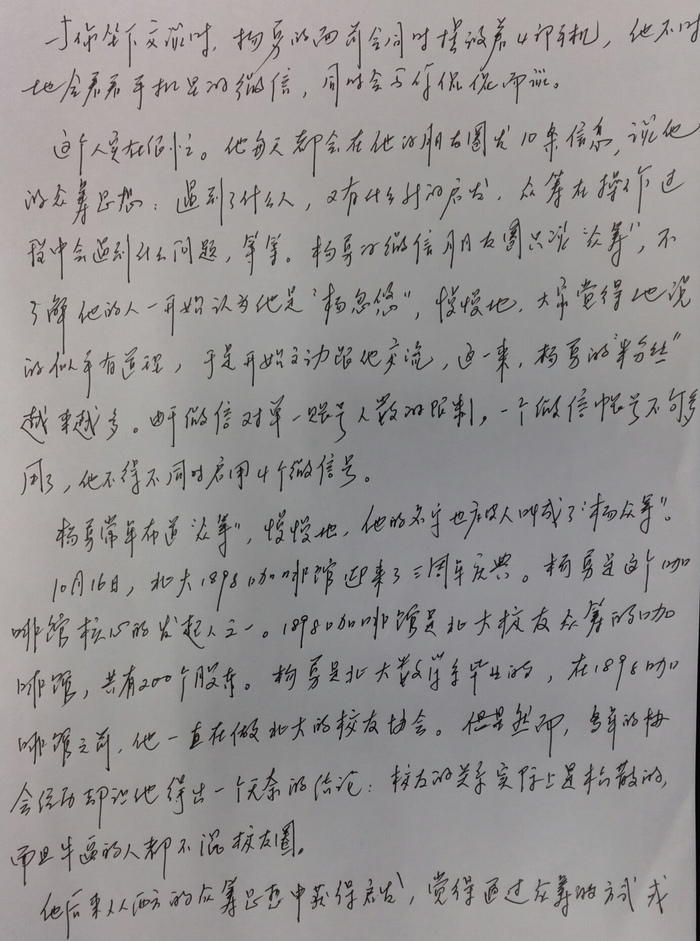 与你坐下交谈时，杨勇的面前会同时摆放着4部手机，他不时
地会看看手机里的微信，同时会与你侃侃而谈。
这个人实在很忙。他每天都会在他的朋友圈发10条信息，说他
的众筹思想：遇到了什么人，又有什么新的启发，众筹在操作过
程中会遇到什么问题，等等。杨勇的微信朋友圈只谈“众筹”，不
了解他的人一开始认为他是“杨忽悠”，慢慢地，大家觉得他说
的似乎有道理，于是开始主动跟他交流，这一来，杨勇的“粉丝”
越来越多。由于微信对单一账号人数的限制，一个微信账号不够
用了，他不得不同时启用4个微信号。
杨勇常年布道“众筹”，慢慢地，他的名字也被人叫成了“杨众筹”。
10月16日，北大1898咖啡馆迎来了三周年庆典。杨勇是这个咖
啡馆核心的发起人之一。1898咖啡馆是北大校友众筹的咖
啡馆，共有200个股东。杨勇是北大数学系毕业的，在1898咖
啡馆之前，他一直在做北大的校友协会。但是然而，多年的协
会经历却让他得出一个无奈的结论：校友的关系实际上是松散的，
而且牛逼的人都不混校友圈。
他后来从西方的众筹思想中获得启发，觉得通过众筹的方式或